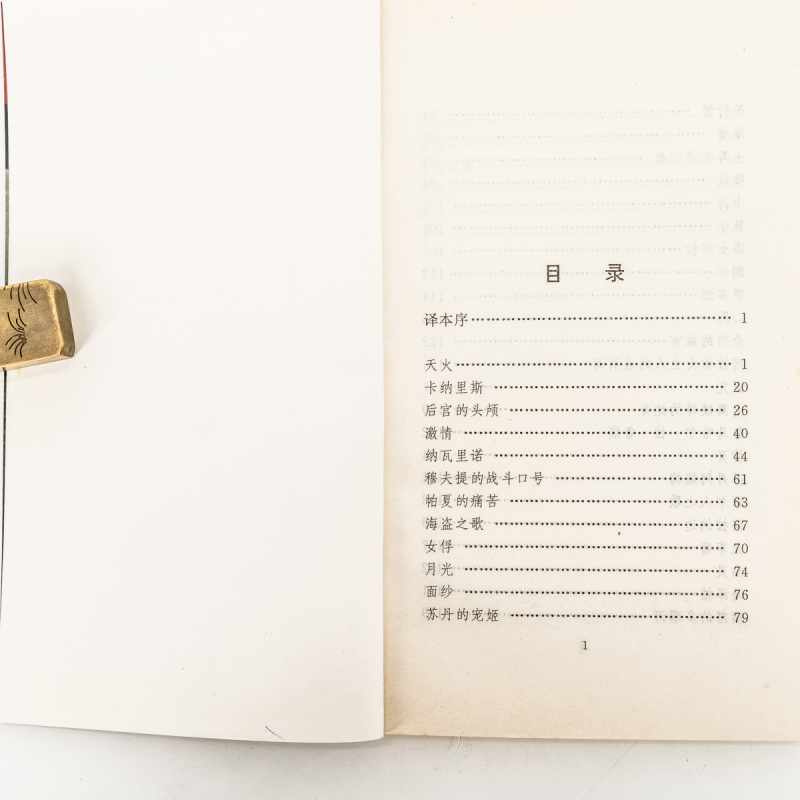 目 录
译本序 …………………………………… 1
天火 …………………………………… 1
卡纳里斯 …………………………………… 20
后宫的头颅 …………………………………… 26
激情 …………………………………… 40
纳瓦里诺 …………………………………… 44
穆夫提的战斗口号 …………………………………… 61
帕夏的痛苦 …………………………………… 63
海盗之歌 …………………………………… 67
女俘 …………………………………… 70
月光 …………………………………… 74
面纱 …………………………………… 76
苏丹的宠姬 …………………………………… 79
1